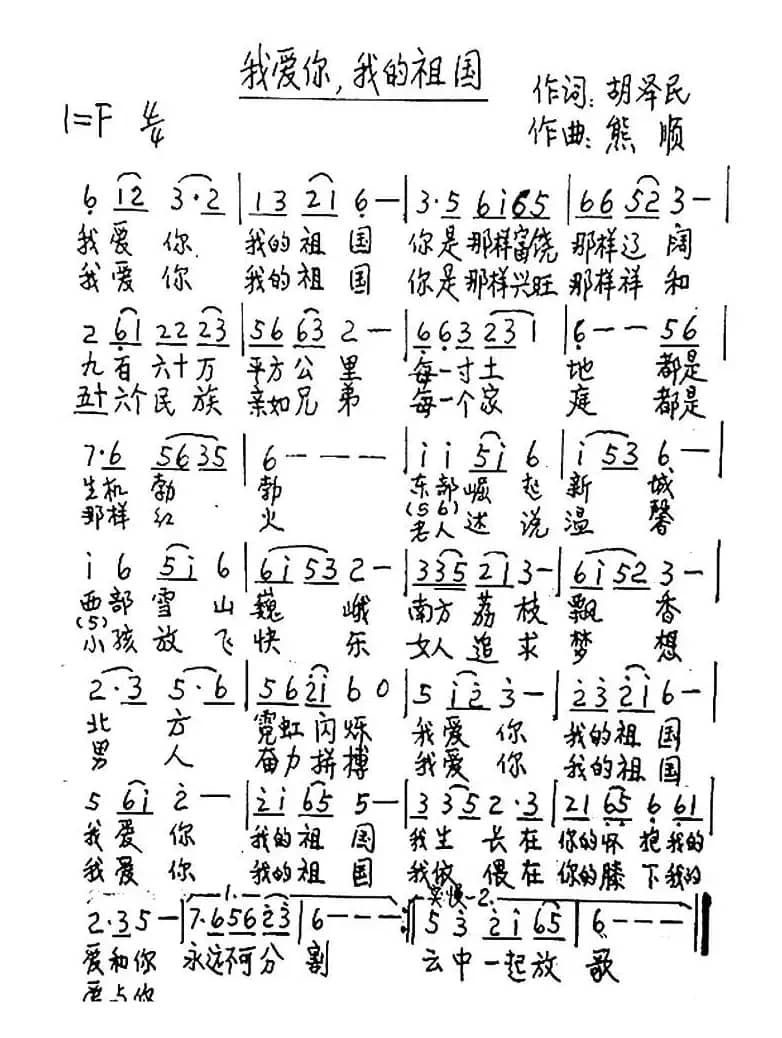 我爱你,我的祖国
作词:胡泽民
1=F 4/4
作曲:熊 顺
6 12 3·2 | 13 21 6 — | 3·5 6i65 | 66 52 3 — |
我爱 你 我的祖 国 你是那样富饶 那样辽 阔
我爱 你 我的祖 国 你是那样兴旺 那样祥 和
2 61 22 23 | 56 63 2 — | 663 231 | 6 — — 56
九百六十万 平方公 里 每一寸土 地 都是
五十六个民族 亲如兄 弟 每一个家 庭 都是
7·6 5635 | 6 — — — | i i 5i 6 | i 53 6 — |
生机 勃 勃 东部崛起 新 城
(56)
那样 红 火 老人述说 温 馨
i 6 5i 6 | 6i53 2 — | 335 2i 3 — | 6i52 3 — |
西部雪山 巍 峨 南方荔枝 飘 香
(5)
小孩放飞 快 乐 女人追求 梦 想
2·3 5·6 | 56 2i 6 0 | 5 i2 3 — | 23 2i 6 — |
北 方 霓虹闪烁 我爱 你 我的祖 国
男 人 奋力拼搏 我爱 你 我的祖 国
5 6i 2 — | 2i 65 5 — | 3 35 2·3 | 21 65 6 61 |
我爱 你 我的祖 国 我生 长在 你的怀 抱我的
我爱 你 我的祖 国 我依 偎在 你的膝 下我的
1. 突慢-2.
2·35 — | 7·656 23 | 6 — — — :| 5 3 2i 65 | 6 — — — ‖
爱和你 永远不可分 割 云中一起放 歌
爱与你